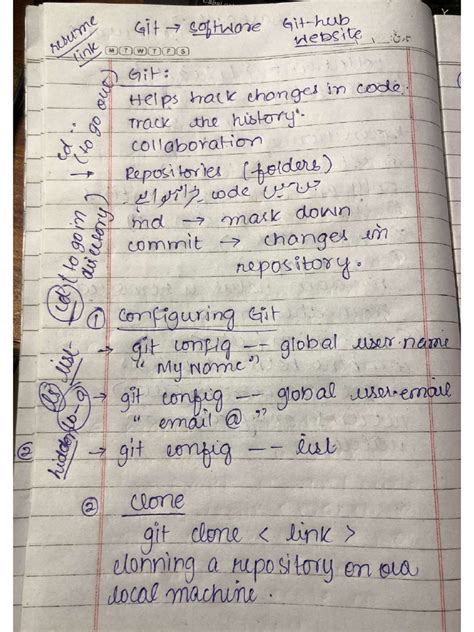 resume link
Git → software Git-hub website
M T W T F S
Git:
Helps track changes in code.
Track the history.
collaboration
→ Repositories (folders)
code
md → mask down
commit → changes in
repository.
cd .. (to go out)
cd (to go in directory)
① Configuring Git
→ git config -- global user.name
"My Name"
→ git config -- global user.email
"email @ "
→ git config -- list
ls list-
hidden
② Clone
git clone < link >
clonning a repository on our
local machine.